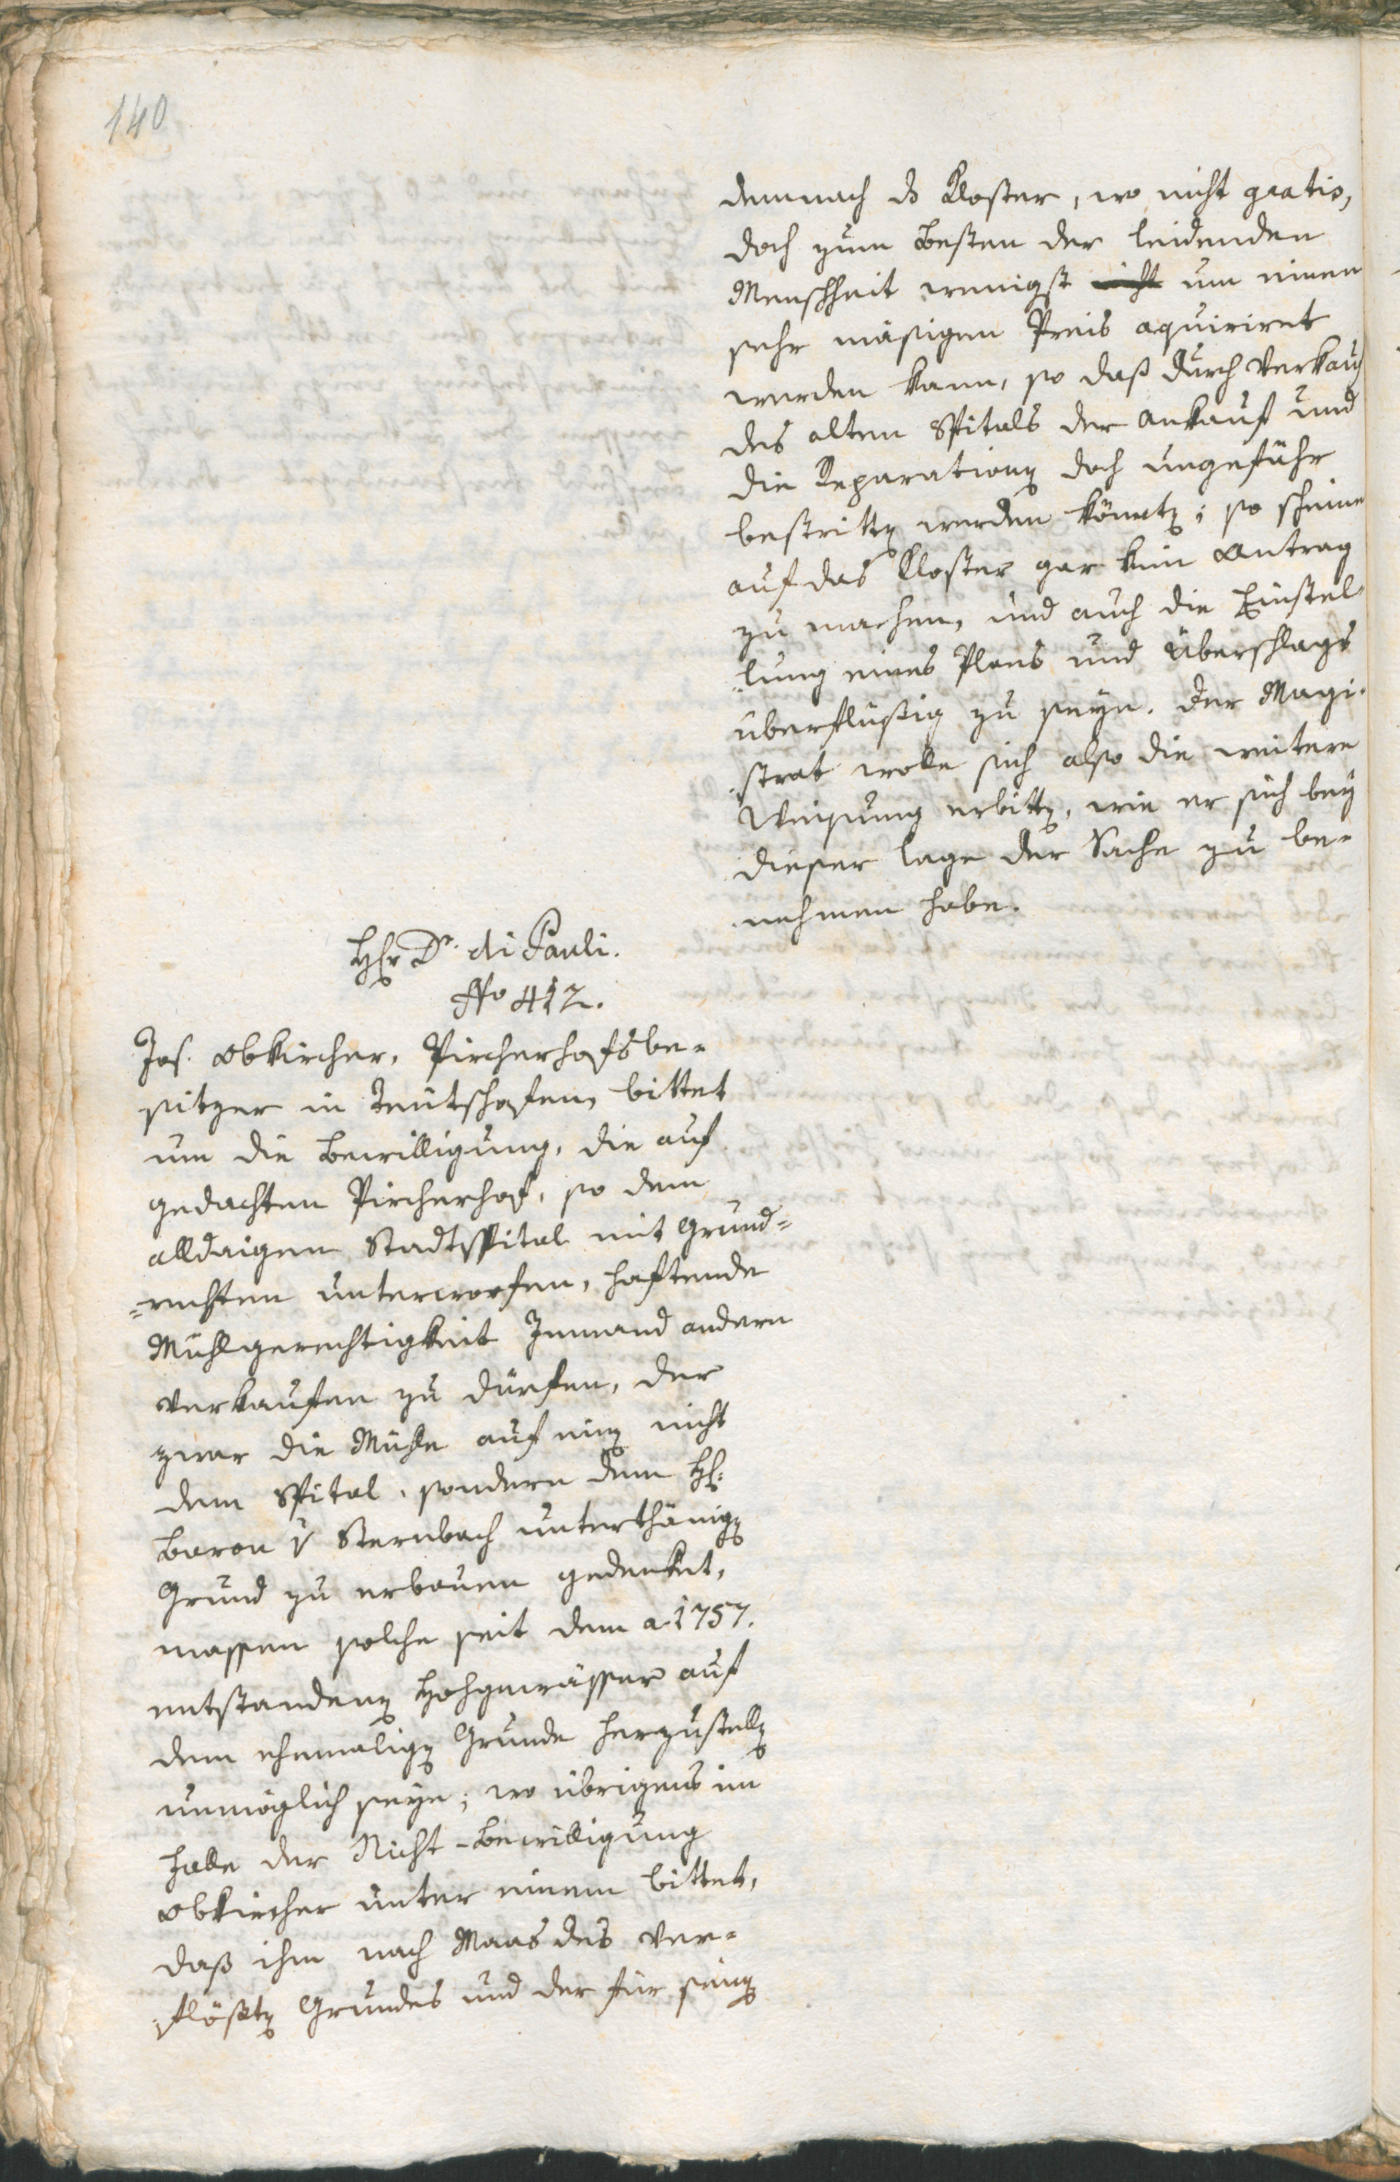 140
demnach ds Kloster, wo nicht gratis,
doch zum Besten der leidenden
Menschheit wenigst nicht um einen
sehr mäsigen Preis aquiriret
werden kann, so daß durch Verkauf
des alten Spitals der Ankauf und
die Reparationen doch ungefähr
bestritten werden könnten; so scheine
auf das Kloster gar kein Antrag
zu machen, und auch die Einstel-
lung eines Plans und Überschlags
überflüßig zu seyn. Der Magi-
strat wolle sich also die weitere
Weisung erbitten, wie er sich bey
dieser lage der Sache zu be-
nehmen habe.
Hr Dr. di Pauli.
No 412.
Jos. Obkircher, Pircherhofsbe-
sitzer in Teutschofen, bittet
um die Bewilligung, die auf
gedachten Pircherhof, so dem
alldaigen Stadtspital mit Grund-
rechten unterworfen, haftende
Mühlgerechtigkeit Jemand andern
verkaufen zu dürfen, der
zwar die Mühle auf einen nicht
dem Spital, sondern dem H:
Baron v Sternbach unterthänigen
Grund zu erbauen gedenket,
massen solche seit dem a. 1757.
entstandenen Hochgewässer auf
dem ehemaligen Grunde herzustellen
unmöglich seye; wo übrigens im
Falle der Nicht-Bewilligung
Obkircher unter einem bittet,
daß ihm nach Maas des ver-
flößten Grundes und der für seinen